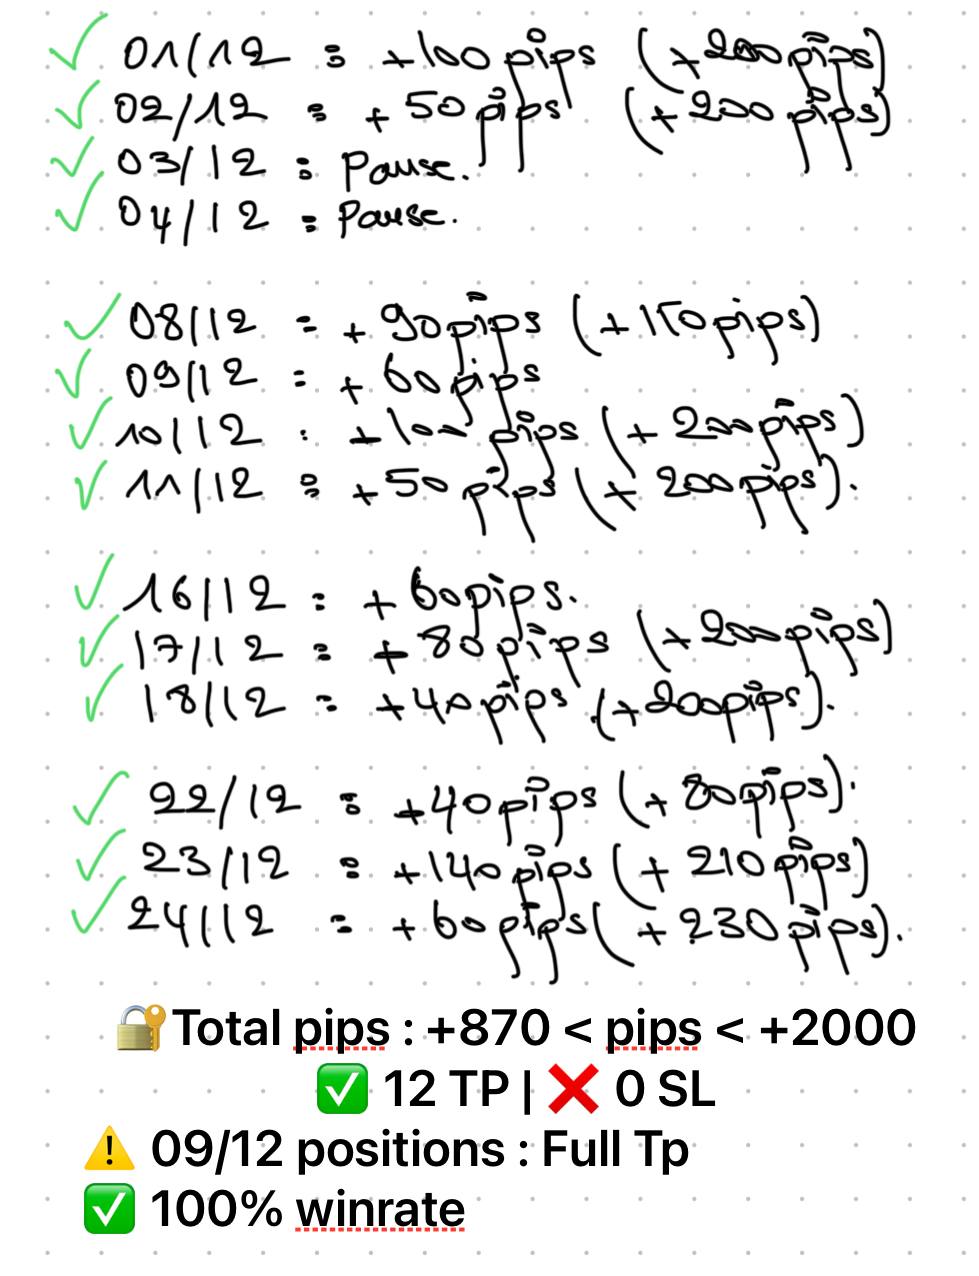 01/12 : +100 pips (+200 pips)
02/12 : +50 pips (+200 pips)
03/12 : Pause.
04/12 : Pause.
08/12 = +90 pips (+150 pips)
09/12 = +60 pips
10/12 : +100 pips (+200 pips)
11/12 : +50 pips (+200 pips).
16/12 : +60 pips.
17/12 : +80 pips (+200 pips)
18/12 : +40 pips (+200 pips).
22/12 : +40 pips (+80 pips).
23/12 : +140 pips (+210 pips)
24/12 : +60 pips (+230 pips).
🔐Total pips : +870 < pips < +2000
✅ 12 TP | ❌ 0 SL
⚠️ 09/12 positions : Full Tp
✅ 100% winrate